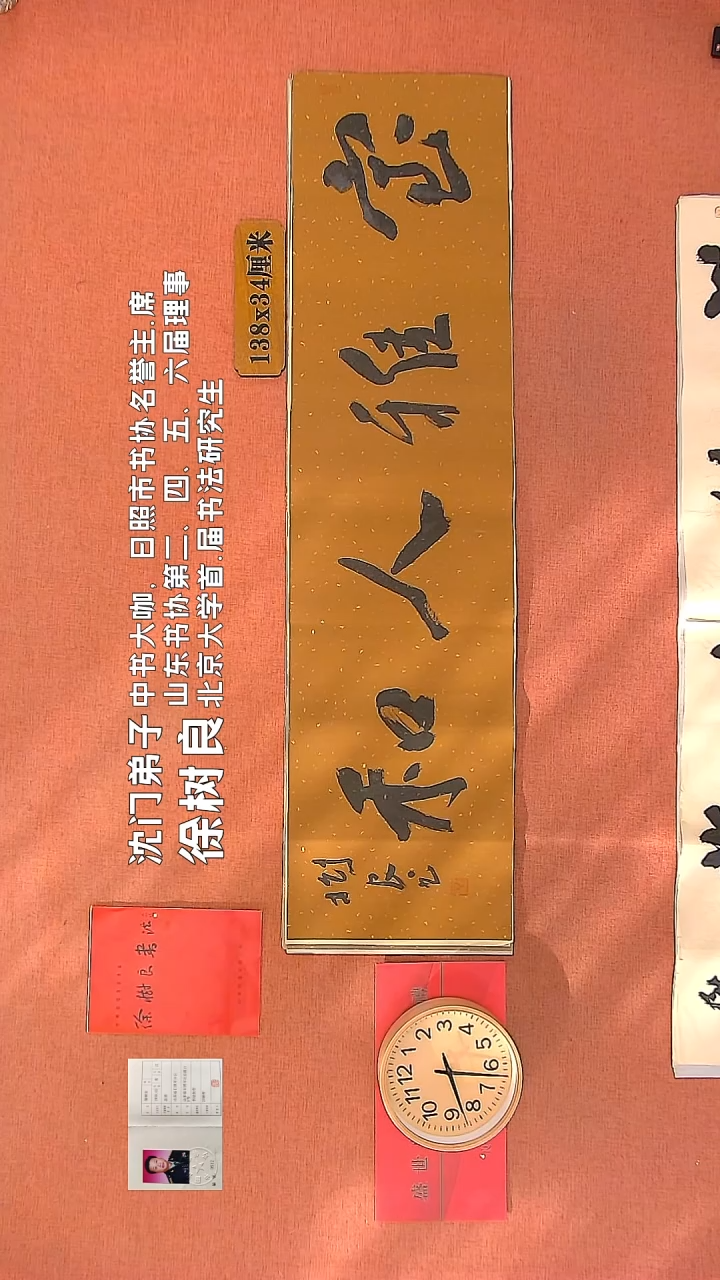 沈门弟子 中书大咖，日照市书协名誉主席
山东书协第三、四、五、六届理事
徐树良 北京大学首届书法研究生
138x34厘米
室雅人和
徐樹良書法
盛世
12
1
2
3
4
5
6
7
8
9
10
11